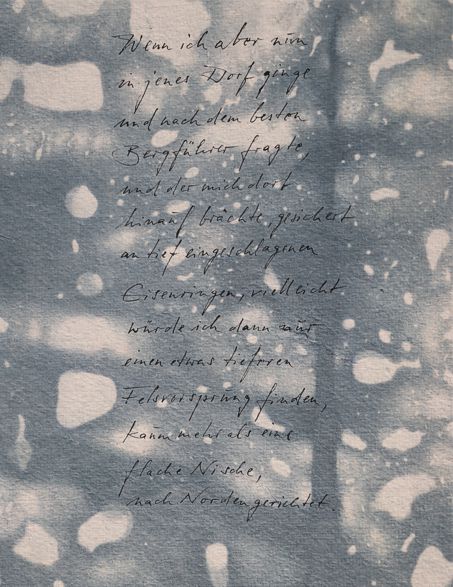 Wenn ich aber nun
in jenes Dorf ginge
und nach dem besten
Bergführer fragte,
und der mich dort
hinauf brächte, gesichert
an tief eingeschlagenen
Eisenringen, vielleicht
würde ich dann nur
einen etwas tieferen
Felsvorsprung finden,
kaum mehr als eine
flache Nische,
nach Norden gerichtet.